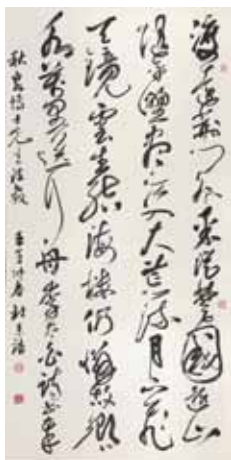 渡遠荊門外來從楚國遊山
隨平野盡江入大荒流月下飛
天鏡雲生結海樓仍憐故鄉
水萬里送行舟李太白詩